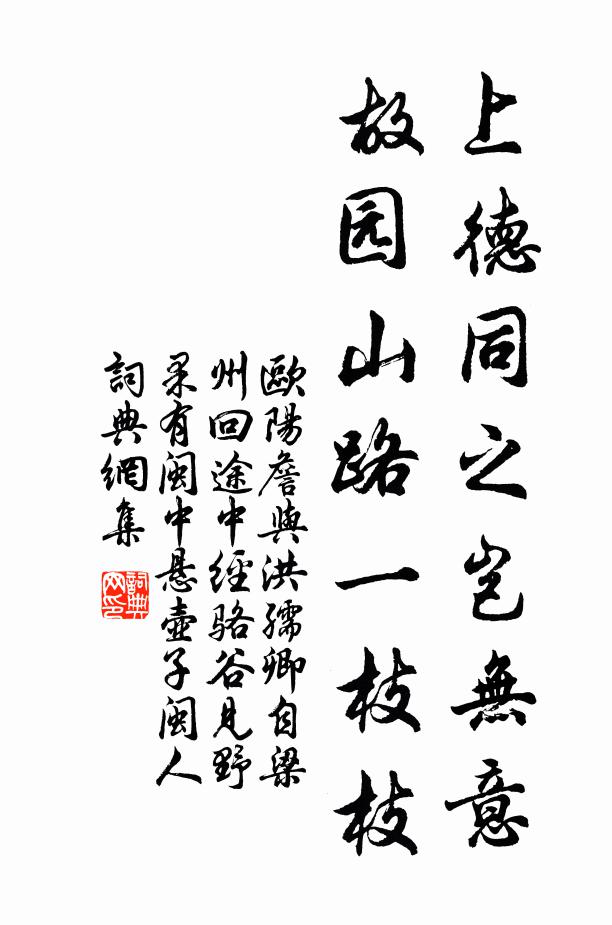 上德同之岂無意
故园山路一枝枝
歐陽詹與洪孺卿自梁
州回途中經骆谷見野
果有闽中悬壶子闽人
詞典網集
詞典网印